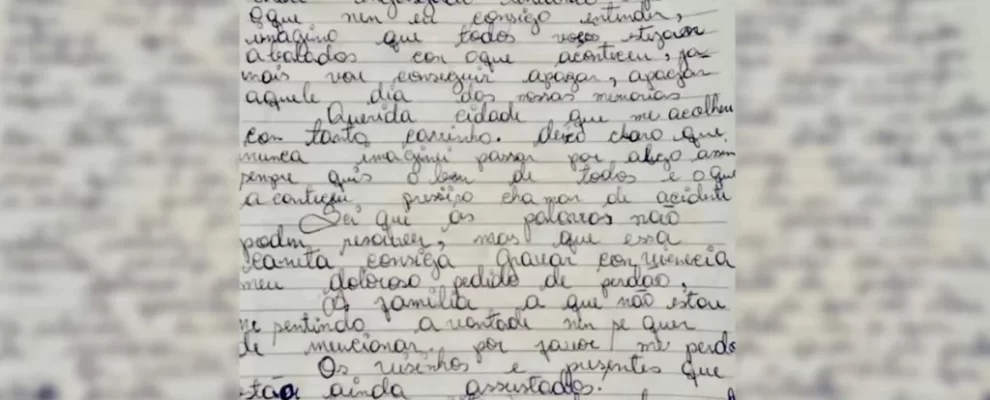 oque nen eu consigo entender,
imagino que todos voces estejam
abalados con oque aconteceu, ja-
mais vou conseguir apagar, apagar
aquele dia das nossas memorias
Querida cidade que me acolheu
con tanto carinho. deixo claro que
nunca imaginei passar por algo assim
sempre quis o bem de todos e o que
aconteceu presiso chamar de acidente
Sei que as palavras não
podm resolver, mas que essa
caneta consiga gravar con
meu doloroso pedido de perdão,
A familia a que não estou
me sentindo a vontade nen se quer
de mencionar. por favor me perdo
Os visinhos e presentes que
estão ainda assustados.